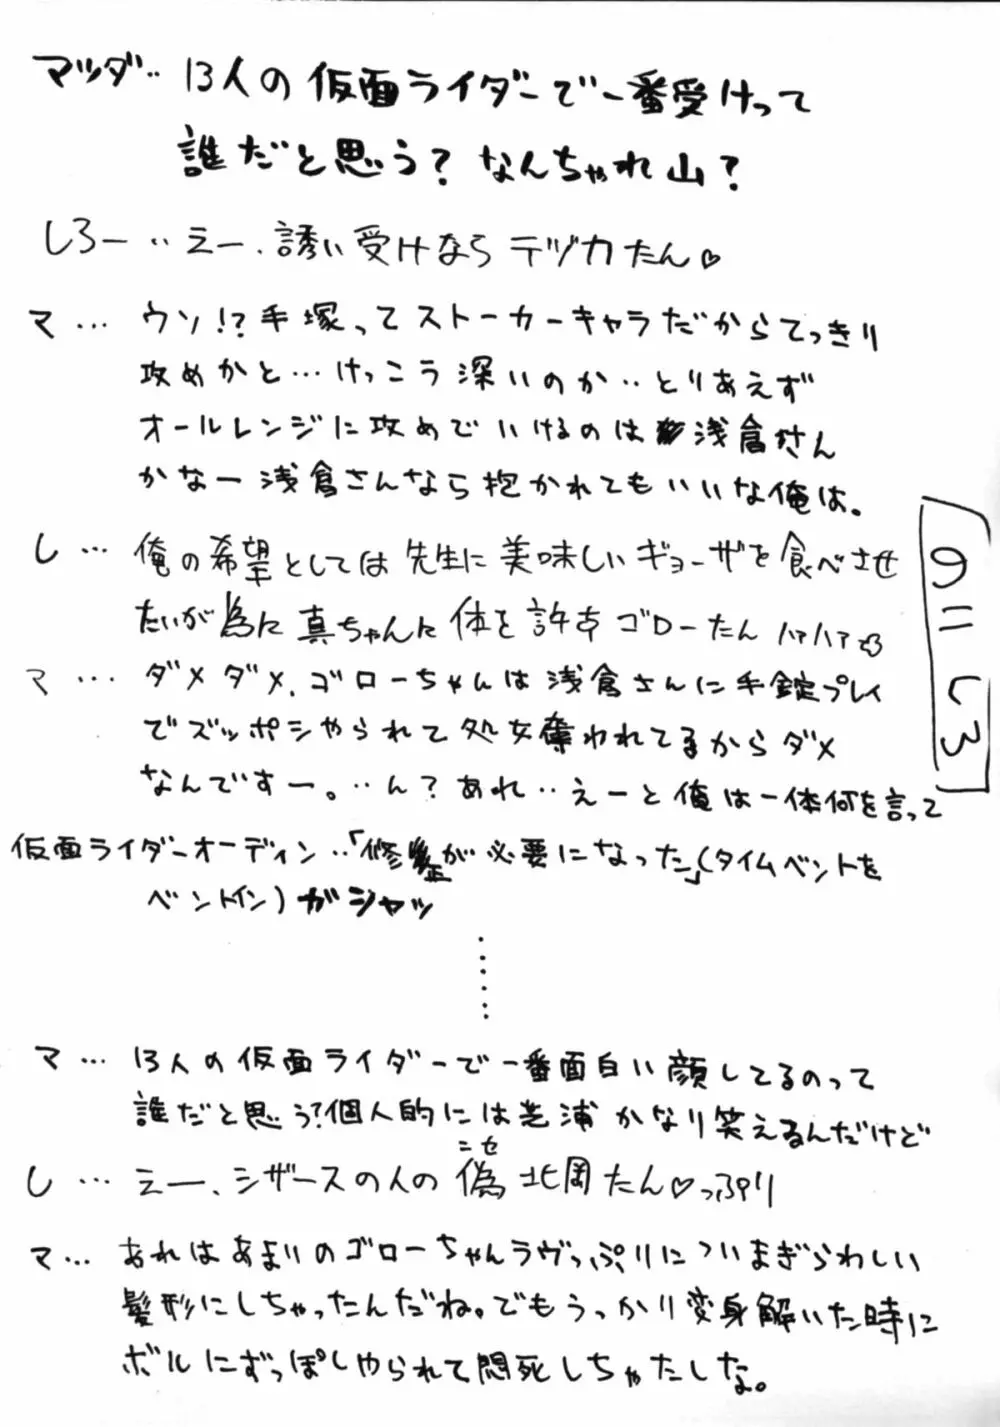 マツダ‥ 13人の仮面ライダーで一番受けって
誰だと思う？なんちゃれ山？
しろー‥えー、誘い受けなら テヅカたん♡
マ… ウソ!?手塚ってストーカーキャラだからてっきり
攻めかと…けっこう深いのか‥とりあえず
オールレンジに攻めでいけるのは浅倉さん
かなー浅倉さんなら抱かれてもいいな俺は。
し… 俺の希望としては先生に美味しいギョーザを食べさせ
たいが為に真ちゃんに体を許すゴローたん ハァハァ
マ… ダメダメ、ゴローちゃんは浅倉さんに手錠プレイ
でズッポシやられて処女奪われてるからダメ
なんですー。‥ん？あれ‥えーと俺は一体何を言って
仮面ライダーオーディン‥「修整が必要になった」(タイムベントを
ベントイン)ガシャッ
マ… 13人の仮面ライダーで一番面白い顔してるのって
誰だと思う？個人的には芝浦かなり笑えるんだけど
し… えー、シザースの人の偽北岡たん♡っぷり
ニセ
マ… あれはあまりのゴローちゃんラヴっぷりについまぎらわしい
髪形にしちゃったんだね。でもうっかり変身解いた時に
ボルにずっぽしやられて悶死しちゃたしな。
の＝しろ